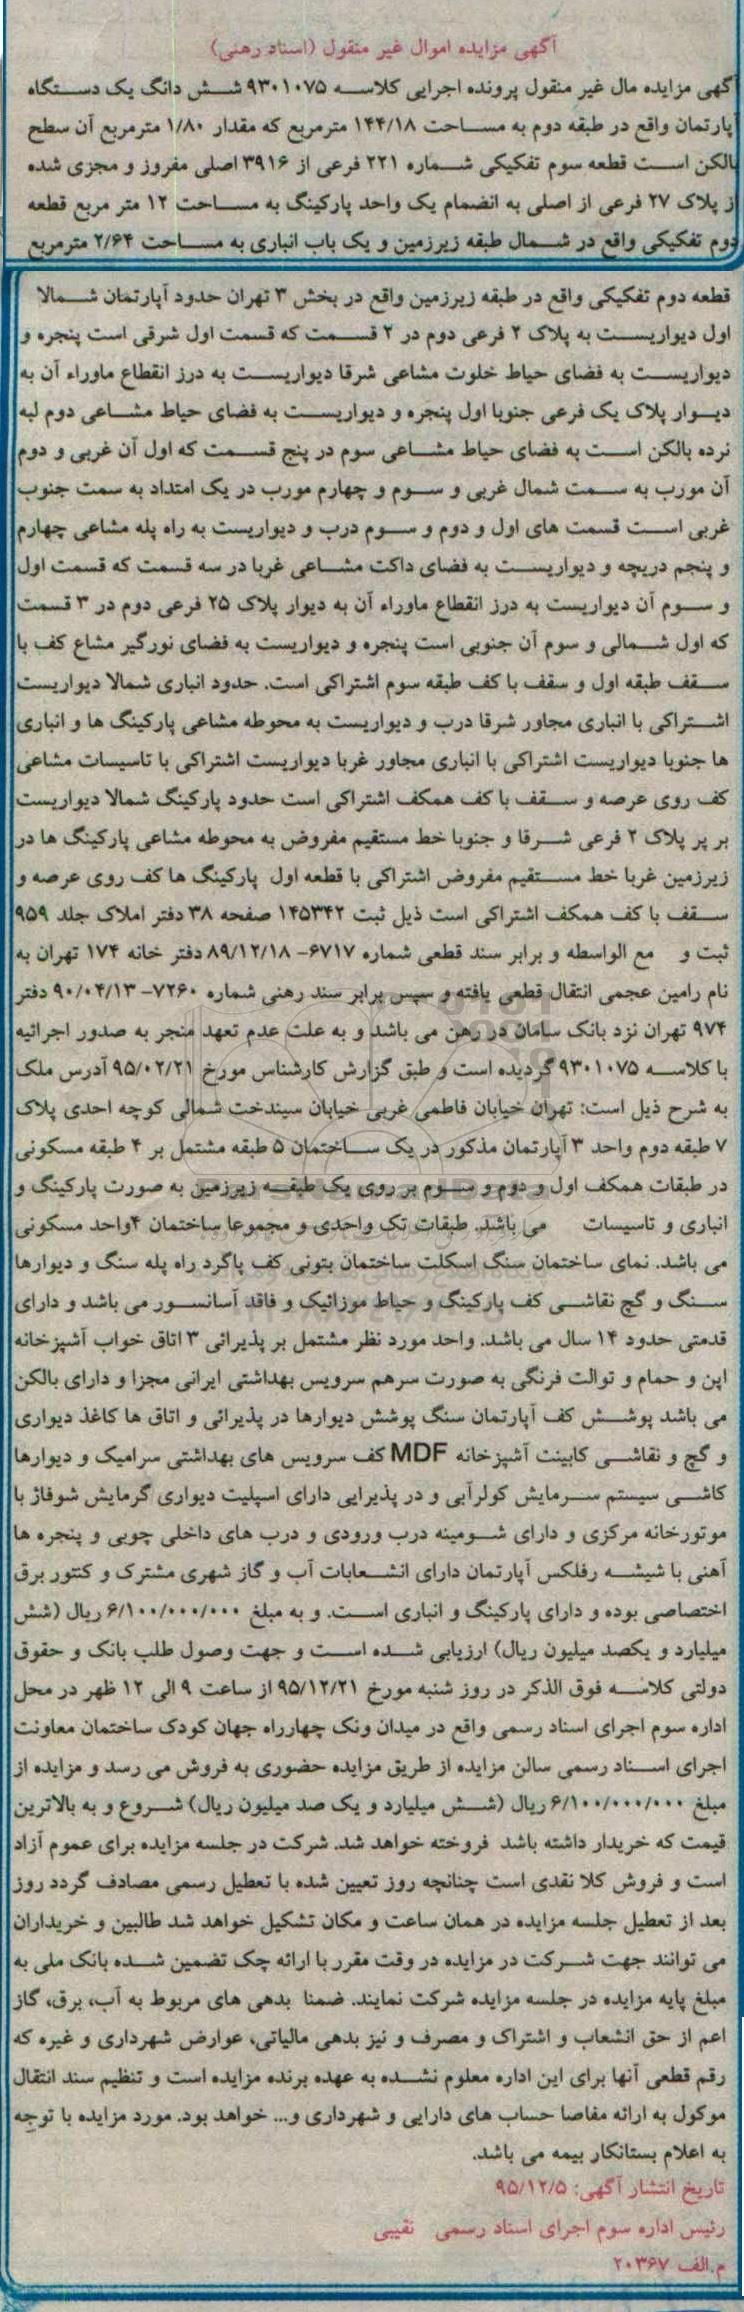 آگهی مزایده اموال غیر منقول (اسناد رهنی)
آگهی مزایده مال غیر منقول پرونده اجرایی کلاسه ۹۳۰۱۰۷۵ شش دانگ یک دستگاه
آپارتمان واقع در طبقه دوم به مساحت ۱۴۴/۱۸ مترمربع که مقدار ۱/۸۰ مترمربع آن سطح
بالکن است قطعه سوم تفکیکی شماره ۲۲۱ فرعی از ۳۹۱۶ اصلی مفروز و مجزی شده
از پلاک ۲۷ فرعی از اصلی به انضمام یک واحد پارکینگ به مساحت ۱۲ متر مربع قطعه
دوم تفکیکی واقع در شمال طبقه زیرزمین و یک باب انباری به مساحت ۲/۶۴ مترمربع
قطعه دوم تفکیکی واقع در طبقه زیرزمین واقع در بخش ۳ تهران حدود آپارتمان شمالا
اول دیواریست به پلاک ۲ فرعی دوم در ۲ قسمت که قسمت اول شرقی است پنجره و
دیواریست به فضای حیاط خلوت مشاعی شرقا دیواریست به درز انقطاع ماوراء آن به
دیوار پلاک یک فرعی جنوبا اول پنجره و دیواریست به فضای حیاط مشاعی دوم لبه
نرده بالکن است به فضای حیاط مشاعی سوم در پنج قسمت که اول آن غربی و دوم
آن مورب به سمت شمال غربی و سوم و چهارم مورب در یک امتداد به سمت جنوب
غربی است قسمت های اول و دوم و سوم درب و دیواریست به راه پله مشاعی چهارم
و پنجم دریچه و دیواریست به فضای داکت مشاعی غربا در سه قسمت که قسمت اول
و سوم آن دیواریست به درز انقطاع ماوراء آن به دیوار پلاک ۲۵ فرعی دوم در ۳ قسمت
که اول شمالی و سوم آن جنوبی است پنجره و دیواریست به فضای نورگیر مشاع کف با
سقف طبقه اول و سقف با کف طبقه سوم اشتراکی است. حدود انباری شمالا دیواریست
اشتراکی با انباری مجاور شرقا درب و دیواریست به محوطه مشاعی پارکینگ ها و انباری
ها جنوبا دیواریست اشتراکی با انباری مجاور غربا دیواریست اشتراکی با تاسیسات مشاعی
کف روی عرصه و سقف با کف همکف اشتراکی است حدود پارکینگ شمالا دیواریست
بر پر پلاک ۲ فرعی شرقا و جنوبا خط مستقیم مفروض به محوطه مشاعی پارکینگ ها در
زیرزمین غربا خط مستقیم مفروض اشتراکی با قطعه اول پارکینگ ها کف روی عرصه و
سقف با کف همکف اشتراکی است ذیل ثبت ۱۴۵۳۴۲ صفحه ۳۸ دفتر املاک جلد ۹۵۹
ثبت و مع الواسطه و برابر سند قطعی شماره ۶۷۱۷- ۸۹/۱۲/۱۸ دفتر خانه ۱۷۴ تهران به
نام رامین عجمی انتقال قطعی یافته و سپس برابر سند رهنی شماره ۷۲۶۰- ۹۰/۰۴/۱۳ دفتر
۹۷۴ تهران نزد بانک سامان در رهن می باشد و به علت عدم تعهد منجر به صدور اجرائیه
با کلاسه ۹۳۰۱۰۷۵ گردیده است و طبق گزارش کارشناس مورخ ۹۵/۰۲/۲۱ آدرس ملک
به شرح ذیل است: تهران خیابان فاطمی غربی خیابان سیندخت شمالی کوچه احدی پلاک
۷ طبقه دوم واحد ۳ آپارتمان مذکور در یک ساختمان ۵ طبقه مشتمل بر ۴ طبقه مسکونی
در طبقات همکف اول و دوم و سوم بر روی یک طبقه زیرزمین به صورت پارکینگ و
انباری و تاسیسات می باشد. طبقات تک واحدی و مجموعا ساختمان ۴واحد مسکونی
می باشد. نمای ساختمان سنگ اسکلت ساختمان بتونی کف پاگرد راه پله سنگ و دیوارها
سنگ و گچ نقاشی کف پارکینگ و حیاط موزائیک و فاقد آسانسور می باشد و دارای
قدمتی حدود ۱۴ سال می باشد. واحد مورد نظر مشتمل بر پذیرائی ۳ اتاق خواب آشپزخانه
اپن و حمام و توالت فرنگی به صورت سرهم سرویس بهداشتی ایرانی مجزا و دارای بالکن
می باشد پوشش کف آپارتمان سنگ پوشش دیوارها در پذیرائی و اتاق ها کاغذ دیواری
و گچ و نقاشی کابینت آشپزخانه MDF کف سرویس های بهداشتی سرامیک و دیوارها
کاشی سیستم سرمایش کولرآبی و در پذیرایی دارای اسپلیت دیواری گرمایش شوفاژ با
موتورخانه مرکزی و دارای شومینه درب ورودی و درب های داخلی چوبی و پنجره ها
آهنی با شیشه رفلکس آپارتمان دارای انشعابات آب و گاز شهری مشترک و کنتور برق
اختصاصی بوده و دارای پارکینگ و انباری است. و به مبلغ ۶/۱۰۰/۰۰۰/۰۰۰ ریال (شش
میلیارد و یکصد میلیون ریال) ارزیابی شده است و جهت وصول طلب بانک و حقوق
دولتی کلاسه فوق الذکر در روز شنبه مورخ ۹۵/۱۲/۲۱ از ساعت ۹ الی ۱۲ ظهر در محل
اداره سوم اجرای اسناد رسمی واقع در میدان ونک چهارراه جهان کودک ساختمان معاونت
اجرای اسناد رسمی سالن مزایده از طریق مزایده حضوری به فروش می رسد و مزایده از
مبلغ ۶/۱۰۰/۰۰۰/۰۰۰ ریال (شش میلیارد و یک صد میلیون ریال) شروع و به بالاترین
قیمت که خریدار داشته باشد فروخته خواهد شد. شرکت در جلسه مزایده برای عموم آزاد
است و فروش کلا نقدی است چنانچه روز تعیین شده با تعطیل رسمی مصادف گردد روز
بعد از تعطیل جلسه مزایده در همان ساعت و مکان تشکیل خواهد شد طالبین و خریداران
می توانند جهت شرکت در مزایده در وقت مقرر با ارائه چک تضمین شده بانک ملی به
مبلغ پایه مزایده در جلسه مزایده شرکت نمایند. ضمنا بدهی های مربوط به آب، برق، گاز
اعم از حق انشعاب و اشتراک و مصرف و نیز بدهی مالیاتی، عوارض شهرداری و غیره که
رقم قطعی آنها برای این اداره معلوم نشده به عهده برنده مزایده است و تنظیم سند انتقال
موکول به ارائه مفاصا حساب های دارایی و شهرداری و... خواهد بود. مورد مزایده با توجه
به اعلام بستانکار بیمه می باشد.
تاریخ انتشار آگهی: ۹۵/۱۲/۵
رئیس اداره سوم اجرای اسناد رسمی نقیبی
م.الف ۲۰۳۶۷